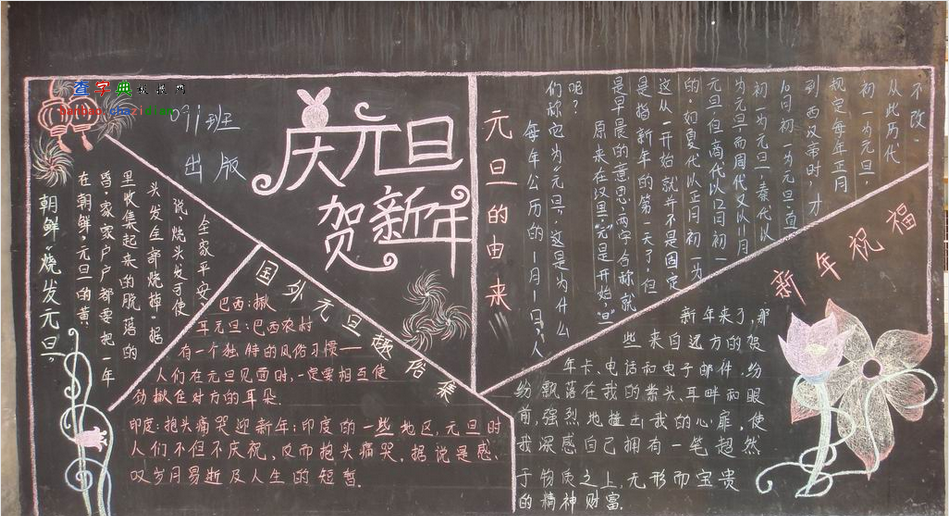 查字典
091班
出版
庆元旦
贺新年
朝鲜“烧发元旦”
在朝鲜，元旦的黄
昏，家家户户都要把一年
里收集起来的脱落的
头发全部烧掉，据
说，烧头发可使
全家平安。
国外元旦趣俗集
巴西：揪
耳元旦：巴西农村
有一个独特的风俗习惯——
人们在元旦见面时，一定要相互使
劲揪住对方的耳朵.
印度：抱头痛哭迎新年：印度的一些地区，元旦时
人们不但不庆祝，反而抱头痛哭，据说是感
叹岁月易逝及人生的短暂.
元旦的由来
每年公历的1月1日，人
们称它为“元旦”，这是为什么
呢？
原来在汉里，“元”是开始，“旦”
是早晨的意思，两字合称就
是指新年的第一天了，但
这从一开始就并不是固定
的，如夏代以正月初一为
元旦，但商代以12月初一
为元旦，而周代又以11月
初一为元旦，秦代以
10月初一为元旦，直
到西汉武帝时，才
规定每年正月
初一为元旦，
从此历代
不改.
新年祝福
新年来了，那
些来自远方的贺
年卡、电话和电子邮件，纷
纷飘落在我的案头、耳畔和眼
前，强烈地撞击我的心扉，使
我深感自己拥有一笔超然
于物质之上，无形而宝贵
的精神财富.